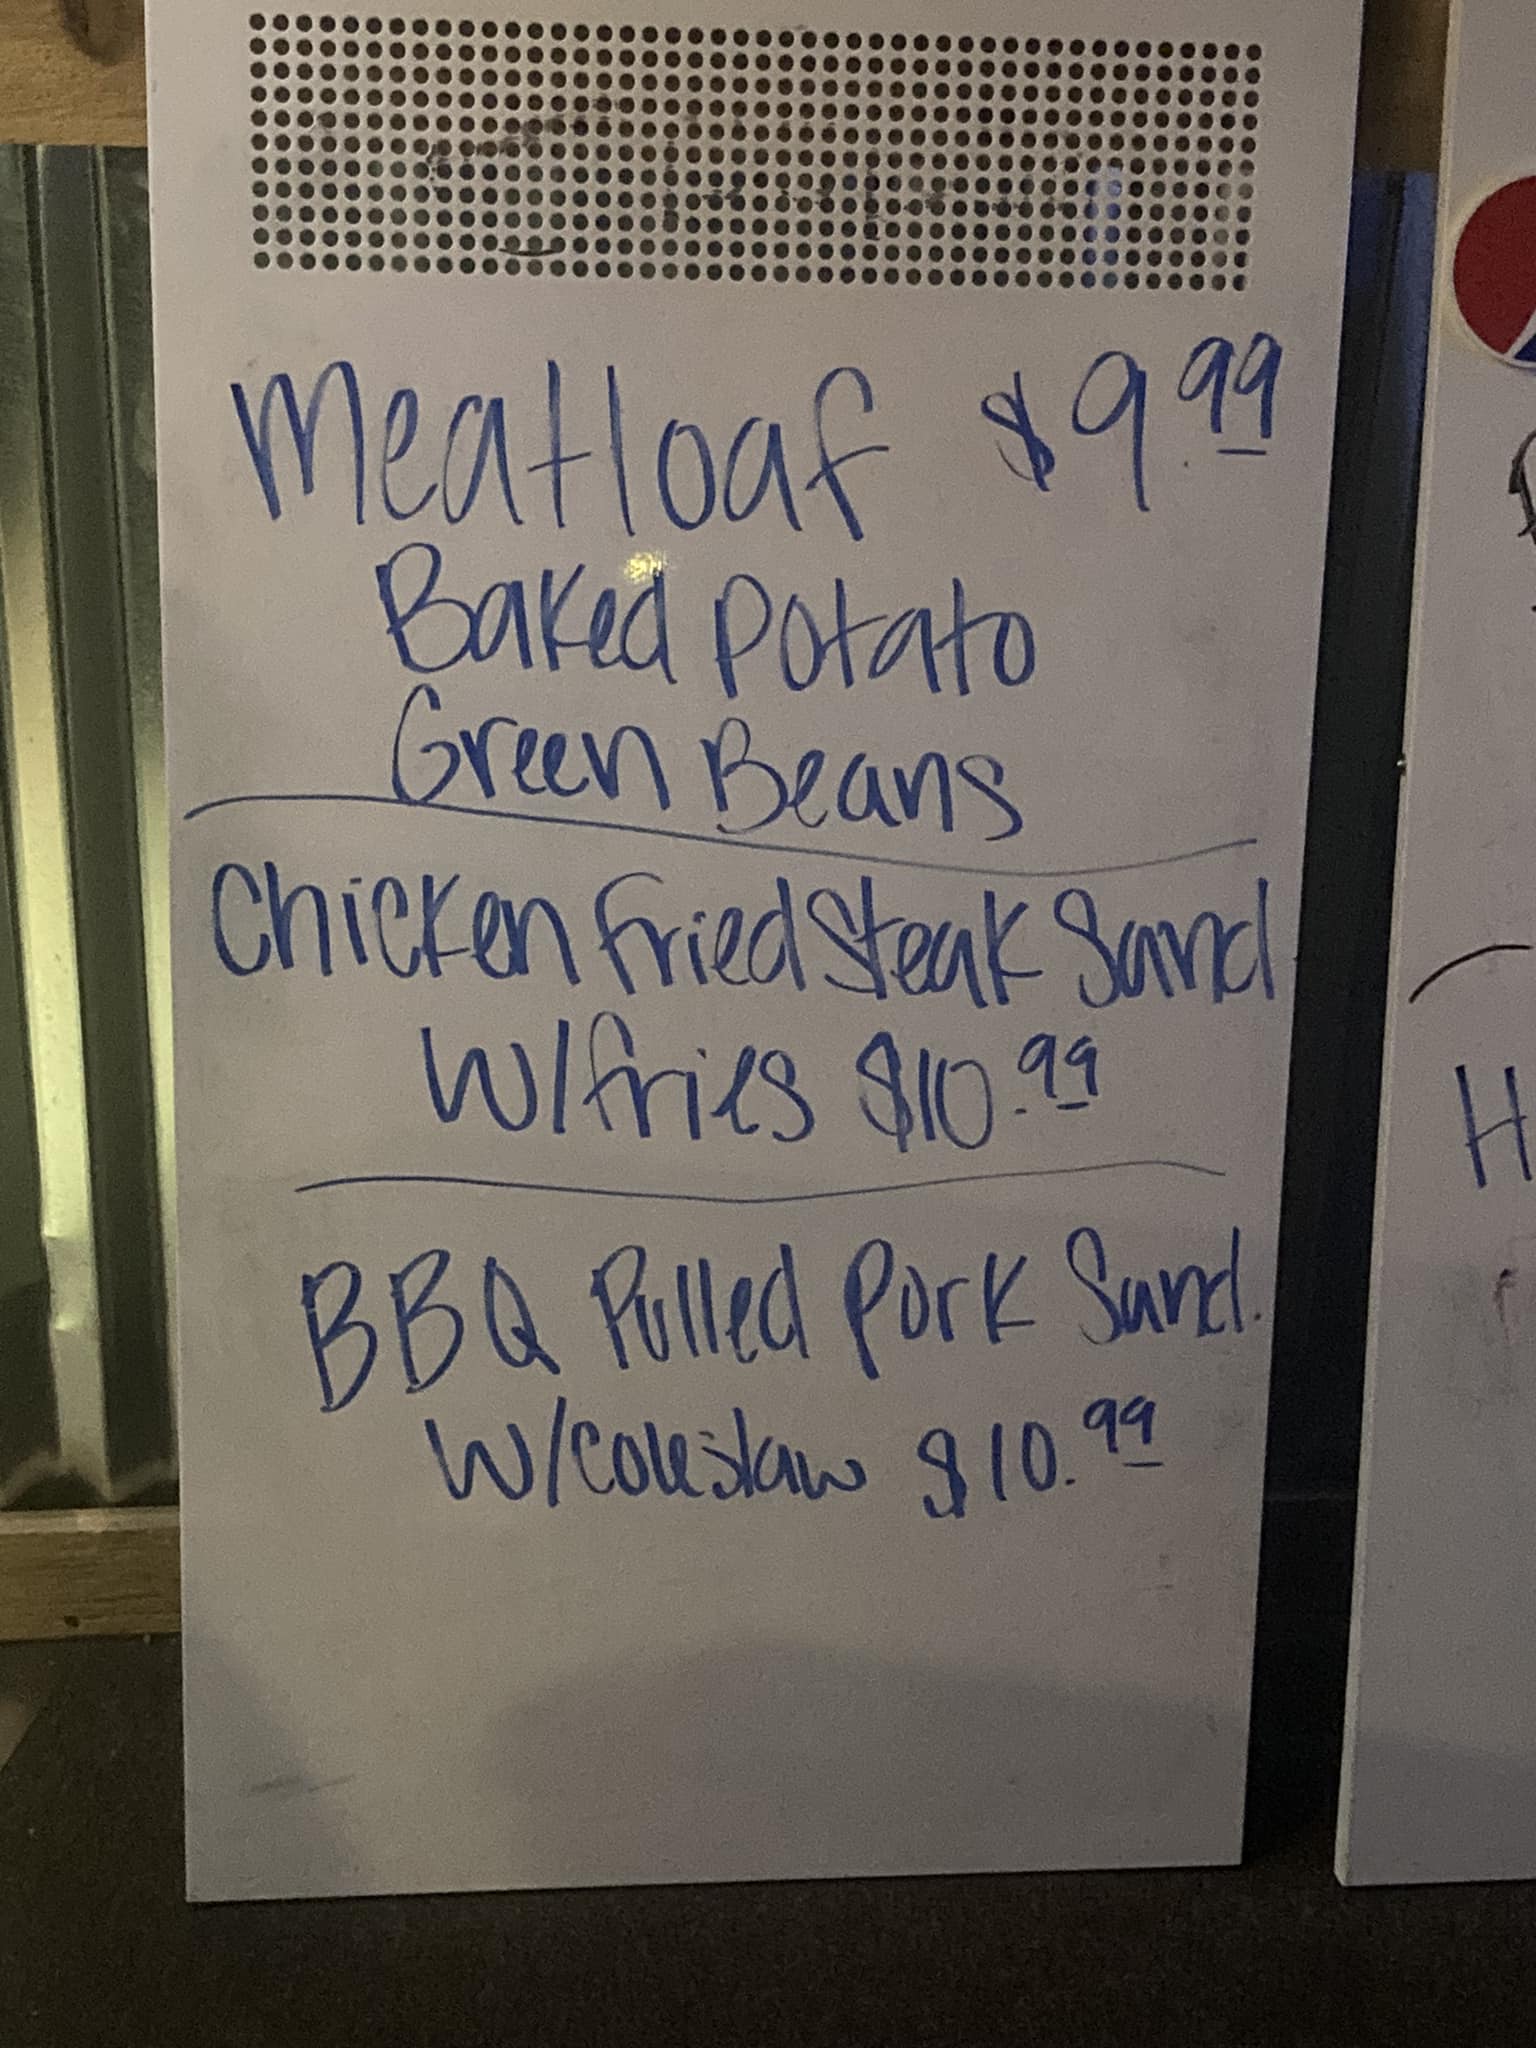 Meatloaf $9.99
Baked Potato
Green Beans
Chicken Fried Steak Sand
W/fries $10.99
BBQ Pulled Pork Sand.
W/Coleslaw $10.99
H